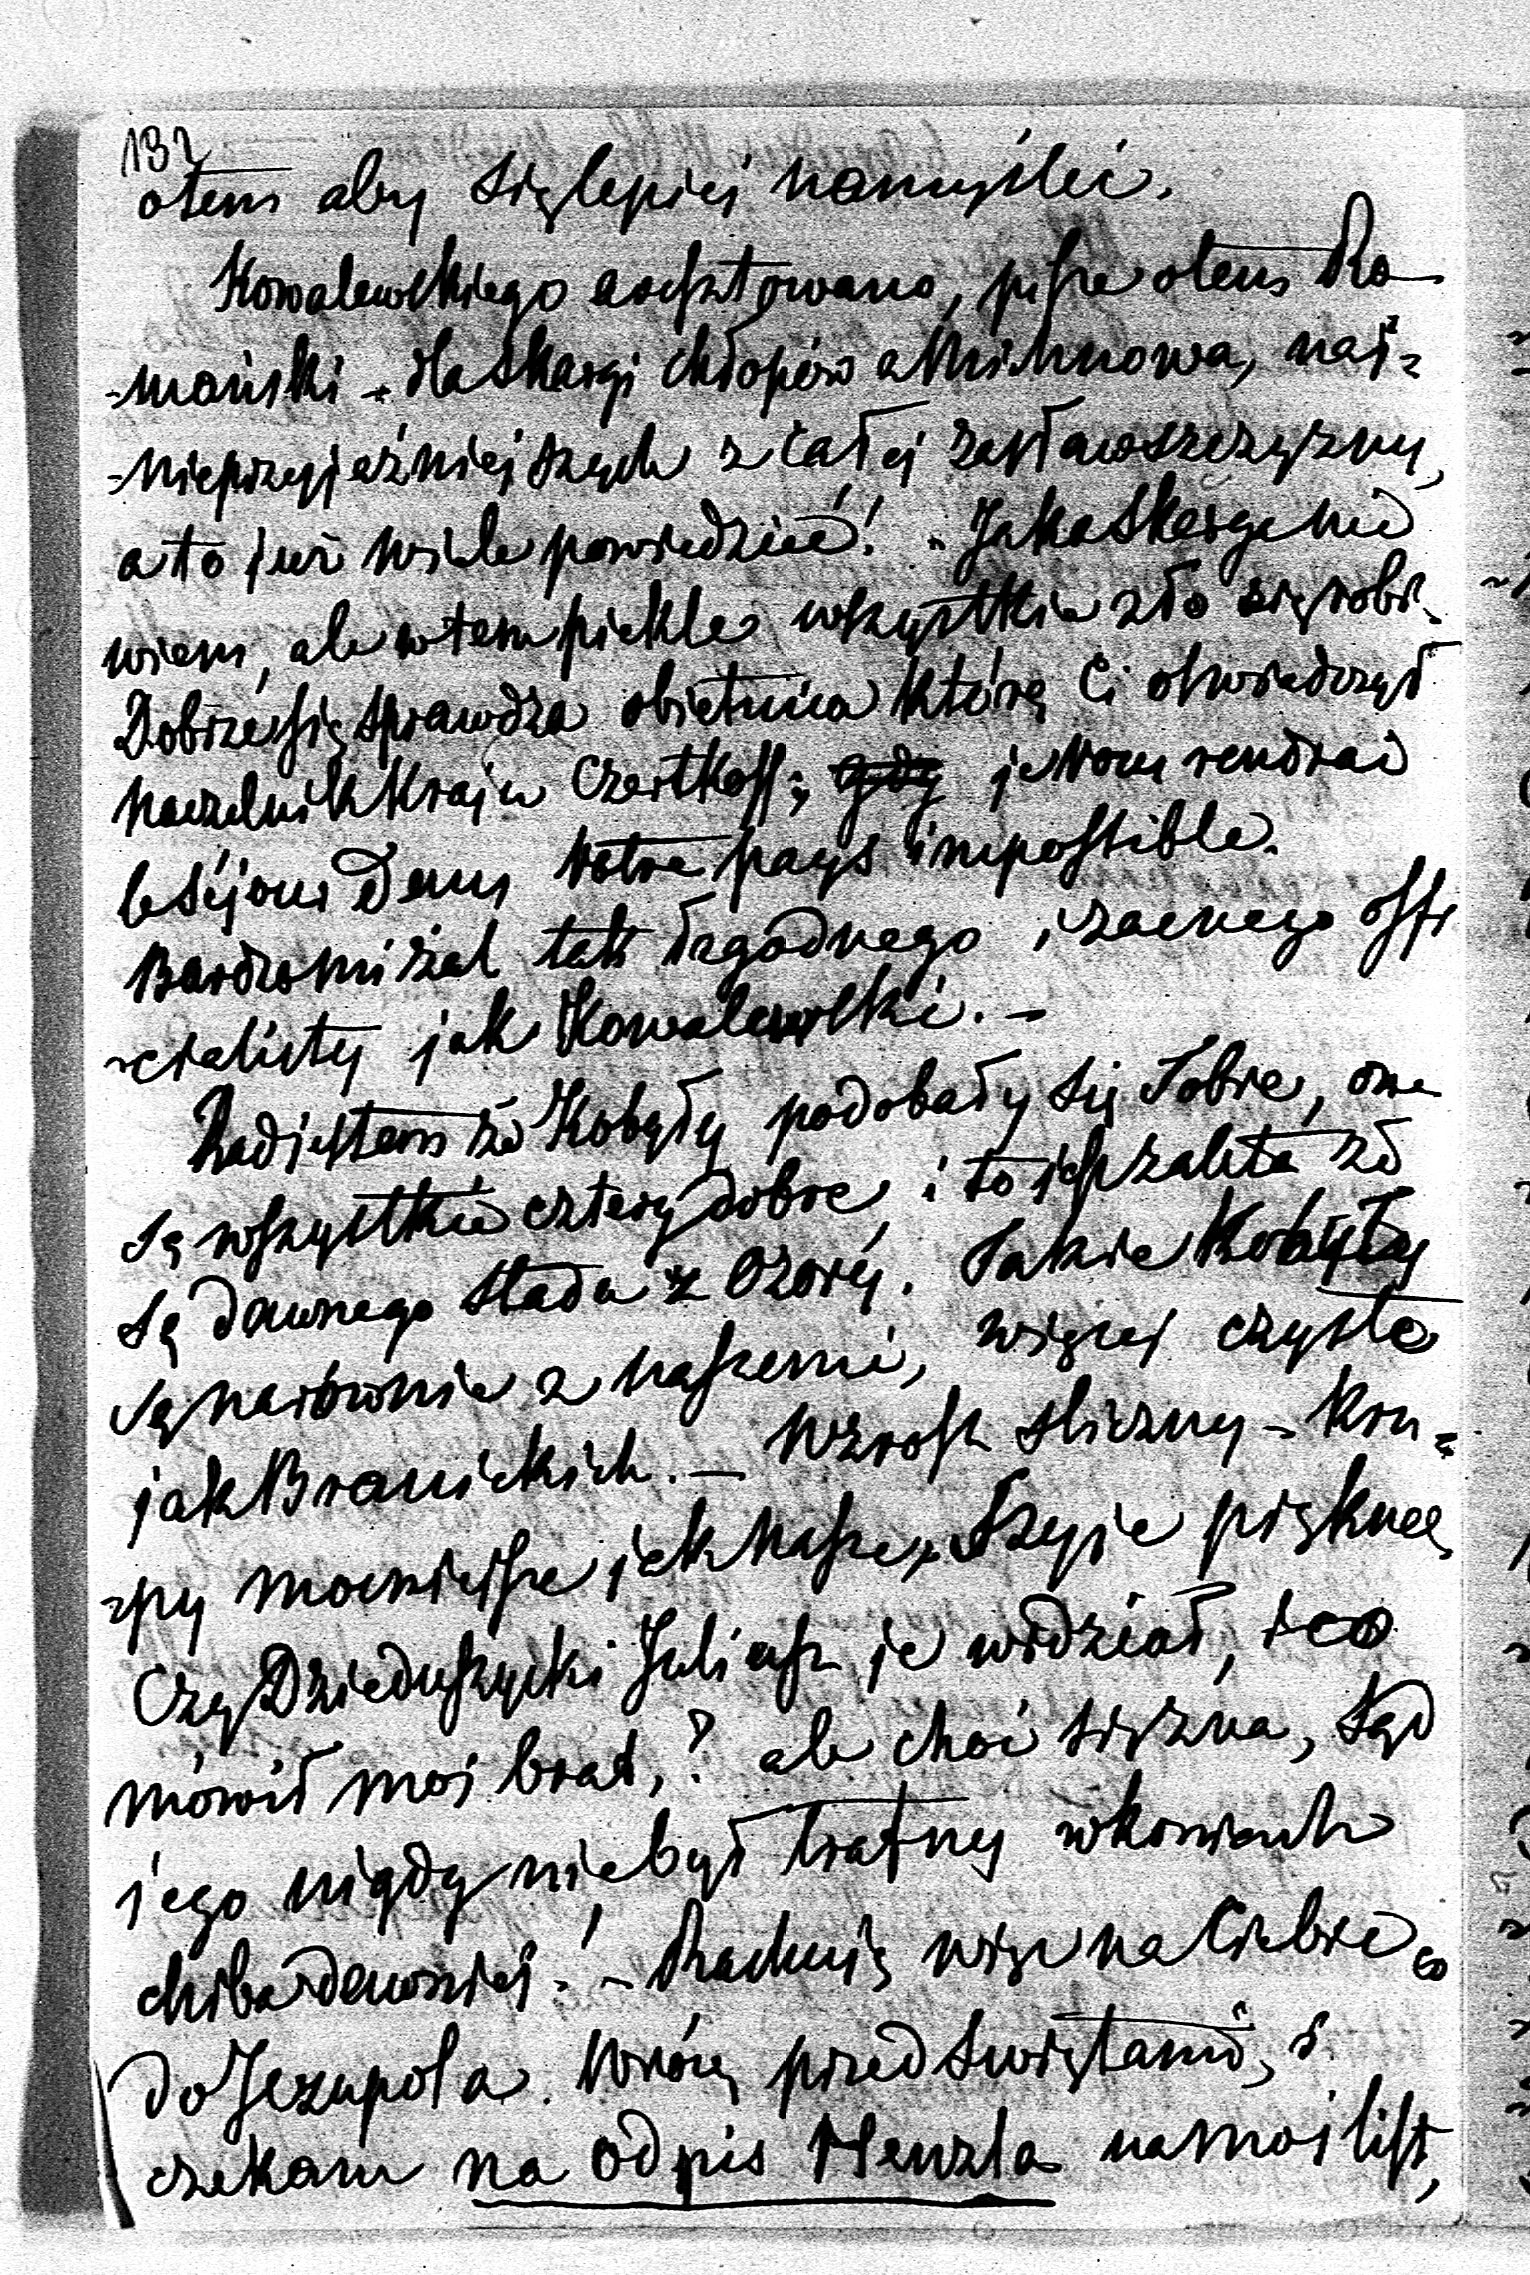 132
otem aby się lepiej namyśleć.
Kowalewskiego aresztowano, pisze otem Ro-
-mański - Na Skargi chłopów z Michnowa, naj-
-nieprzyjaźniejszych z całej Zasławszczyzny,
a to już wiele powiedzieć! - Jaka Skarga nie
wiem, ale w tem piekle wszystkie zło się robi.
Dobrze się sprawdza obietnica którą Ci oświadczył
naczelnik Kraju Czertkoff; je vous rendrai
le séjour dans votre pays impossible.
Bardzo mi żal tak zgodnego i zacnego offi
-cialisty jak Kowalewski. -
Rad jestem że Kobyły podobały się Tobie, one
są wszystkie cztery dobre, i to ich zaleta że
są dawnego stada z Ozory. Takie Kobyły
są narównie z naszemi, więcej czyste
jak Branickich. - Wzrost śliczny - kru-
-py mocniejsze jak nasze, Szyje piękne,
Czy Dzieduszycki Juliusz je widział, i co
mówił moj brat,? ale choć się zna, Sąd
jego nigdy nie był trafny w koniach
chiba dawniej. - Rachuję więc na Ciebie co
do Jezupola. Wrócę przed Świętami, i
czekam na odpis Henzla na moj list,